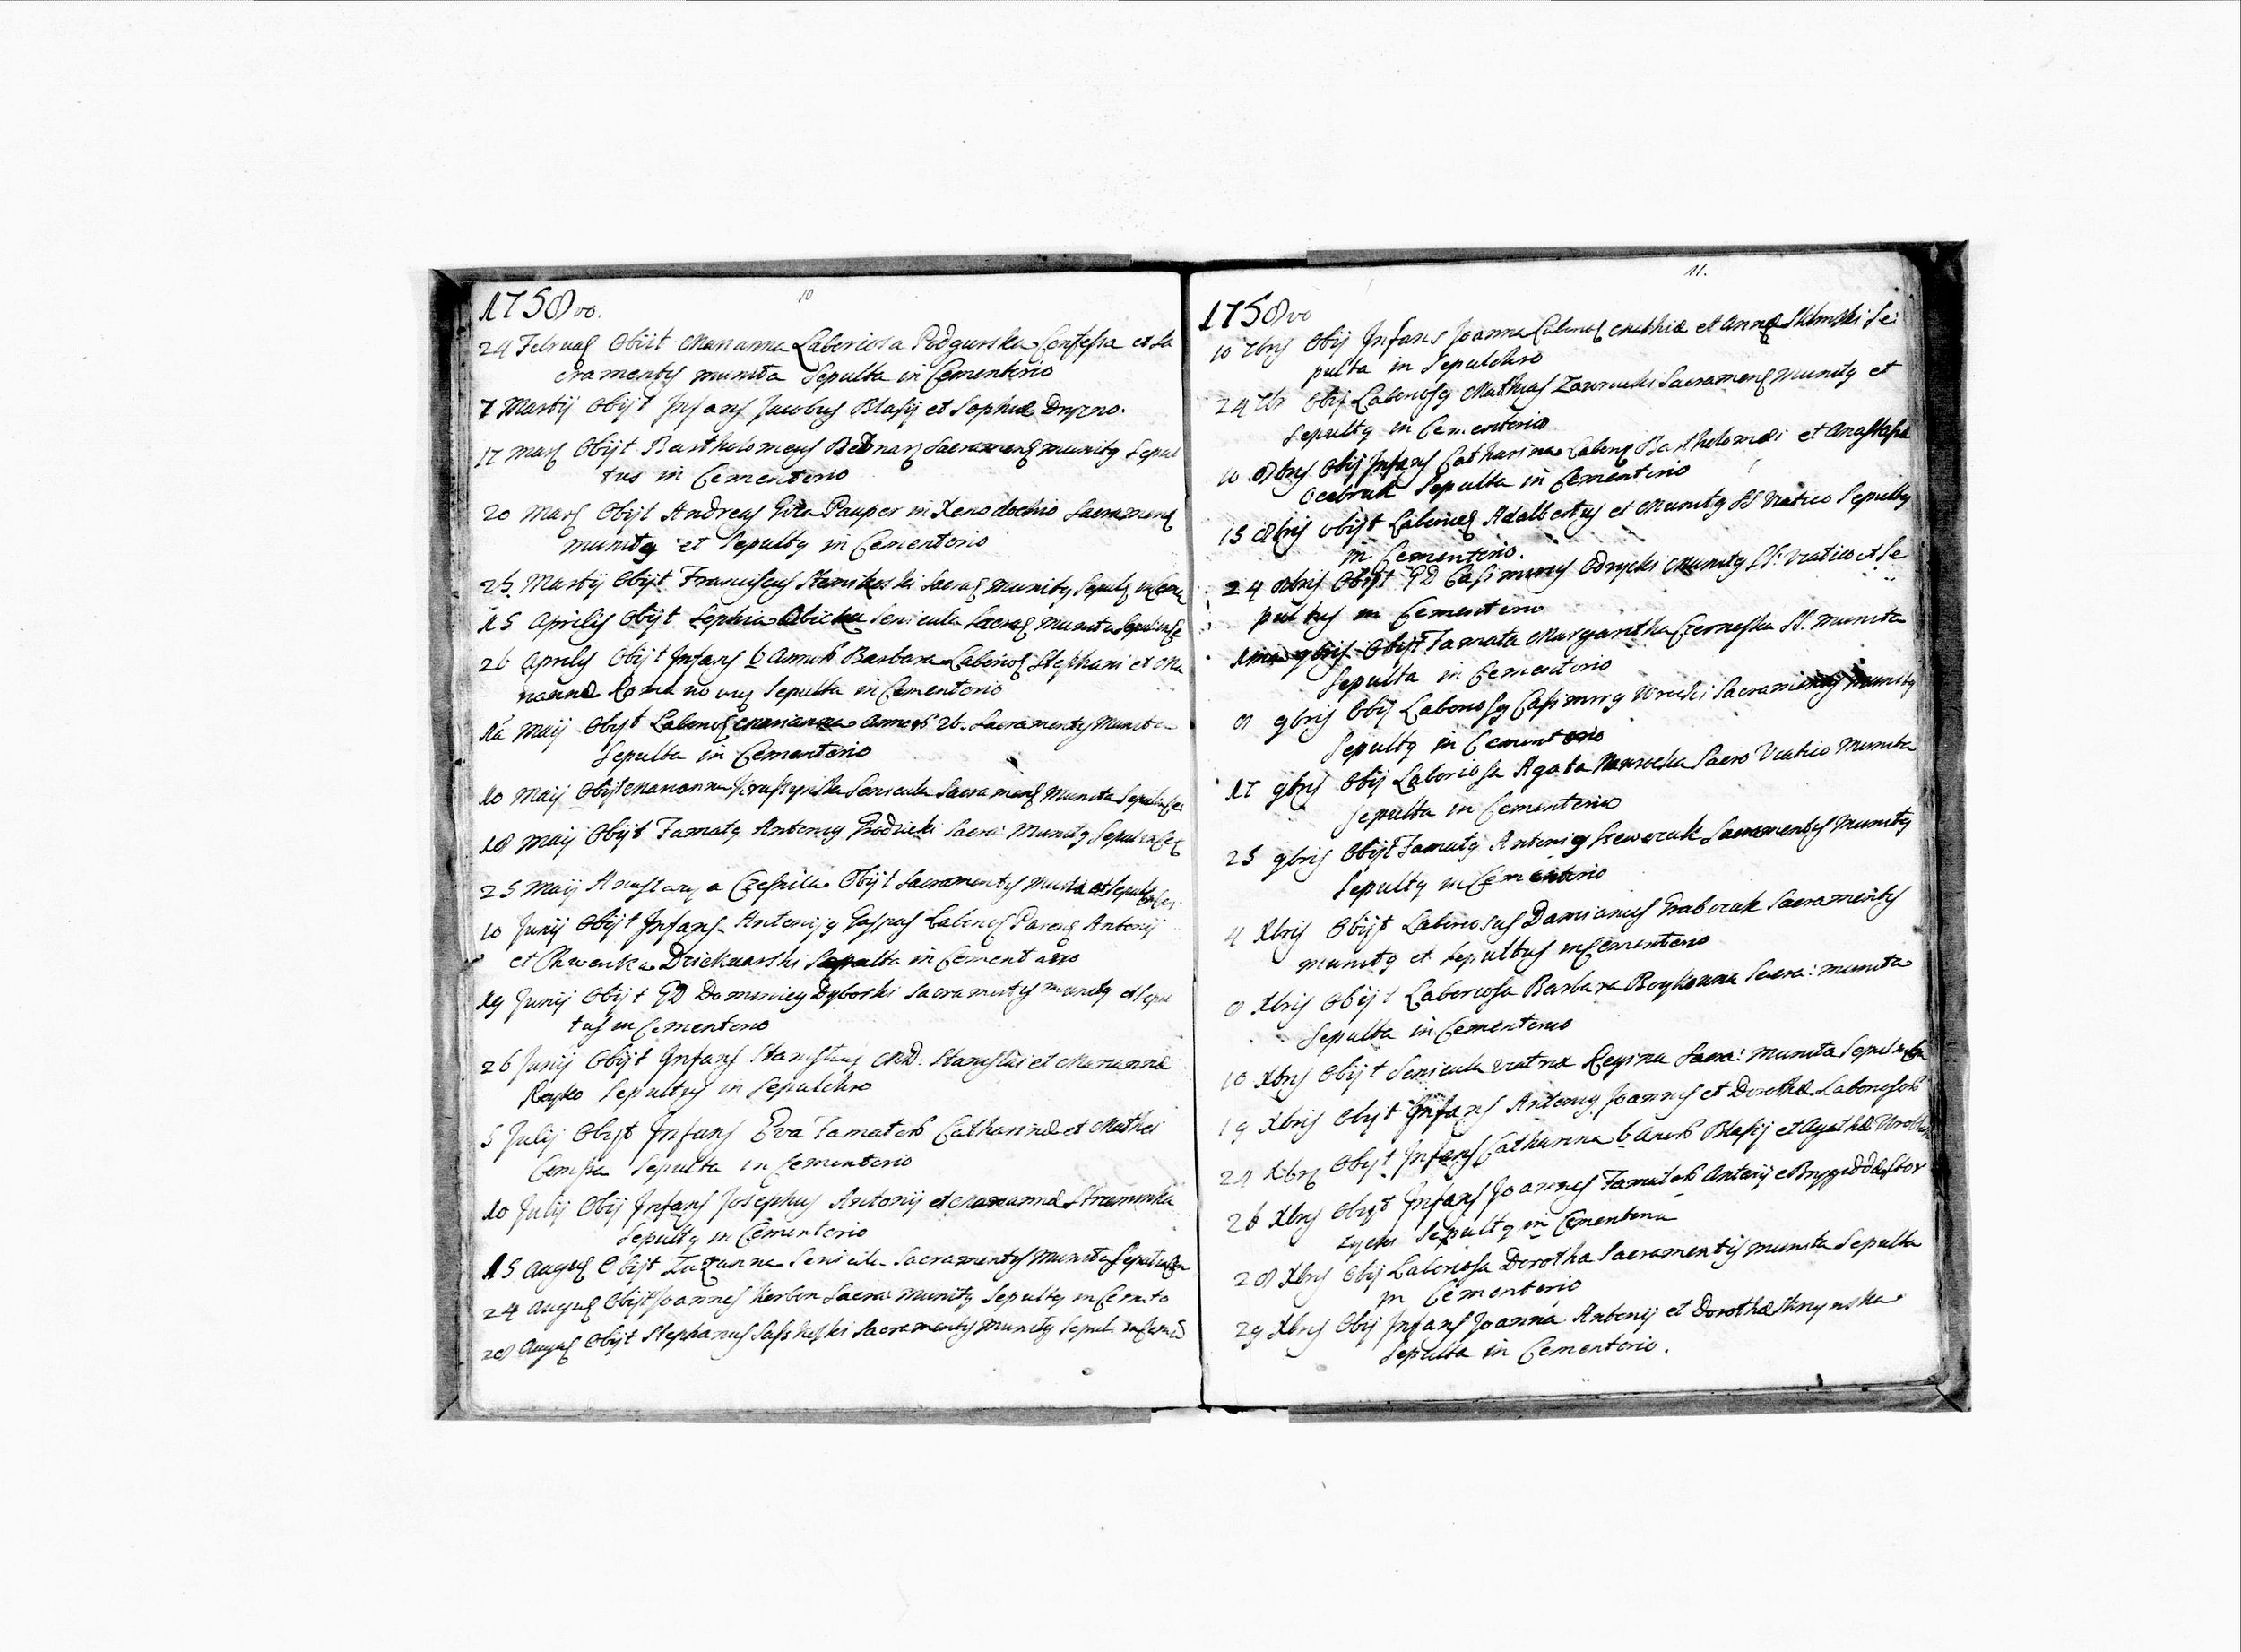 10
1758vo.
24 Februaς Obiit Marianna Laboriosa Podgurska Confessa et Sa
cramentys munita Sepulta in Cementerio
7 Martij Obijt Infans Jacobus Blasij et Sophiæ Dryzno.
17 Marς Obijt Bartholomeus Bednarz Sacramenς munitq Sepul
tus in Cementerio
20 Marς Obijt Andreas Gita Pauper in Xenodochio Sacramenς
munitq et Sepultq in Cementerio
25. Martij Obijt Franciscus Stanikoski Sacraς munitq Sepulς in Ceme
15 Aprilis Obijt Sophia Senicula Sacraς munita Sepul in Ce
26 Aprilis Obijt Infans 6 Annorum Barbara Laborioς Stephani et Ma
riannæ Romanowus Sepulta in Cementerio
Maij Obijt Laborioς Marianna Annorum 26. Sacramentys Munita
Sepulta in Cementerio
10 Maij Obijt Marianna Senicula Sacramenς Munita Sepul in Ce
18 Maij Obijt Famatq Antonig Grodzicki Sacra: Munitq Sepul in Ce
25 Maij a Czesnika Obijt Sacramentys Munita et Sepulta in Ce:
10 Junij Obijt Infans Antonijq Gaspas Laborioς Parenς Antonij
et Dziekuarski Sepulta in Cementario
19 Junij Obijt GD Dominicq Dyboski Sacramentys munitq et Sepul
tus in Cementerio
26 Junij Obijt Infans Stanislaus MD: Stanislai et Mariannæ
Reyko Sepultus in Sepulchro
5 Julij Obijt Infans Eva Famatorum Catharinæ et Mathei
Sepulta in Cementerio
10 Julij Obij Infans Josephus Antonij et Mariannæ Strumnka
Sepultq in Cementerio
15 Auguς Obijt Zuzanna Senicula Sacramentys Munita Sepul in Cem
24 Auguς Obijt Joannes Kerbin Sacra: Munitq Sepultq in Cemeto
28 Auguς Obijt Stephanus Sacramentys Munitq Sepul: in Ceme
11.
1758vo
10 7bris Obij Infans Joanna Laborioς Mathiæ et Annæ Se:
pulta in Sepulchro
24 7br Obij Laboriosq Mathias Zawrucki Sacramenς Munitq et
Sepultq in Cementerio
10 8bris Obij Infans Catharina Laborς Bartholomæi et Anastasia
Sepulta in Cementerio
15 8bris Obijt Laborioς Adalbertus et Munitq SS Viatico Sepultq
in Cementerio.
24 8bris Obijt GD Casimirus Odrycki Munitq SS: Viatico et Se
pultus in Cementerio
1ma 9bris Obijt Famata Margaritha Czerneska SS. Munita
Sepulta in Cementerio
8 9bris Obij Laboriosq Casimirq Sacramentys Munitq
Sepultq in Cementerio
17 9bris Obij Laboriosa Agata Sacro Viatico Munita
Sepulta in Cementerio
25 9bris Obijt Famatq Antoniq Szewczuk Sacramentys Munitq
Sepultq in Cementerio
4 Xbris Obijt Laboriosus Damianus Grabczuk Sacramentys
munitq et Sepultus in Cementerio
8 Xbris Obijt Laboriosa Barbara Boykowna Sacra: munita
Sepulta in Cementerio
10 Xbris Obijt Senicula Regina Sacra: munita Sepul in Cem
19 Xbris Obijt Infans Antonig Joannis et Dorothæ Laboriosorum
24 Xbrς Obijt Infans Catharina 6 Anorum Blasij et Agathæ
26 Xbris Obijt Infans Joannes Famatorum Antonij et Brygiddæ Stor
Sepultq in Cementerio
28 Xbris Obij Laboriosa Dorotha Sacramentis munita Sepulta
in Cementerio
29 Xbris Obij Infans Joanna Antonij et Dorothæ
Sepulta in Cementerio.